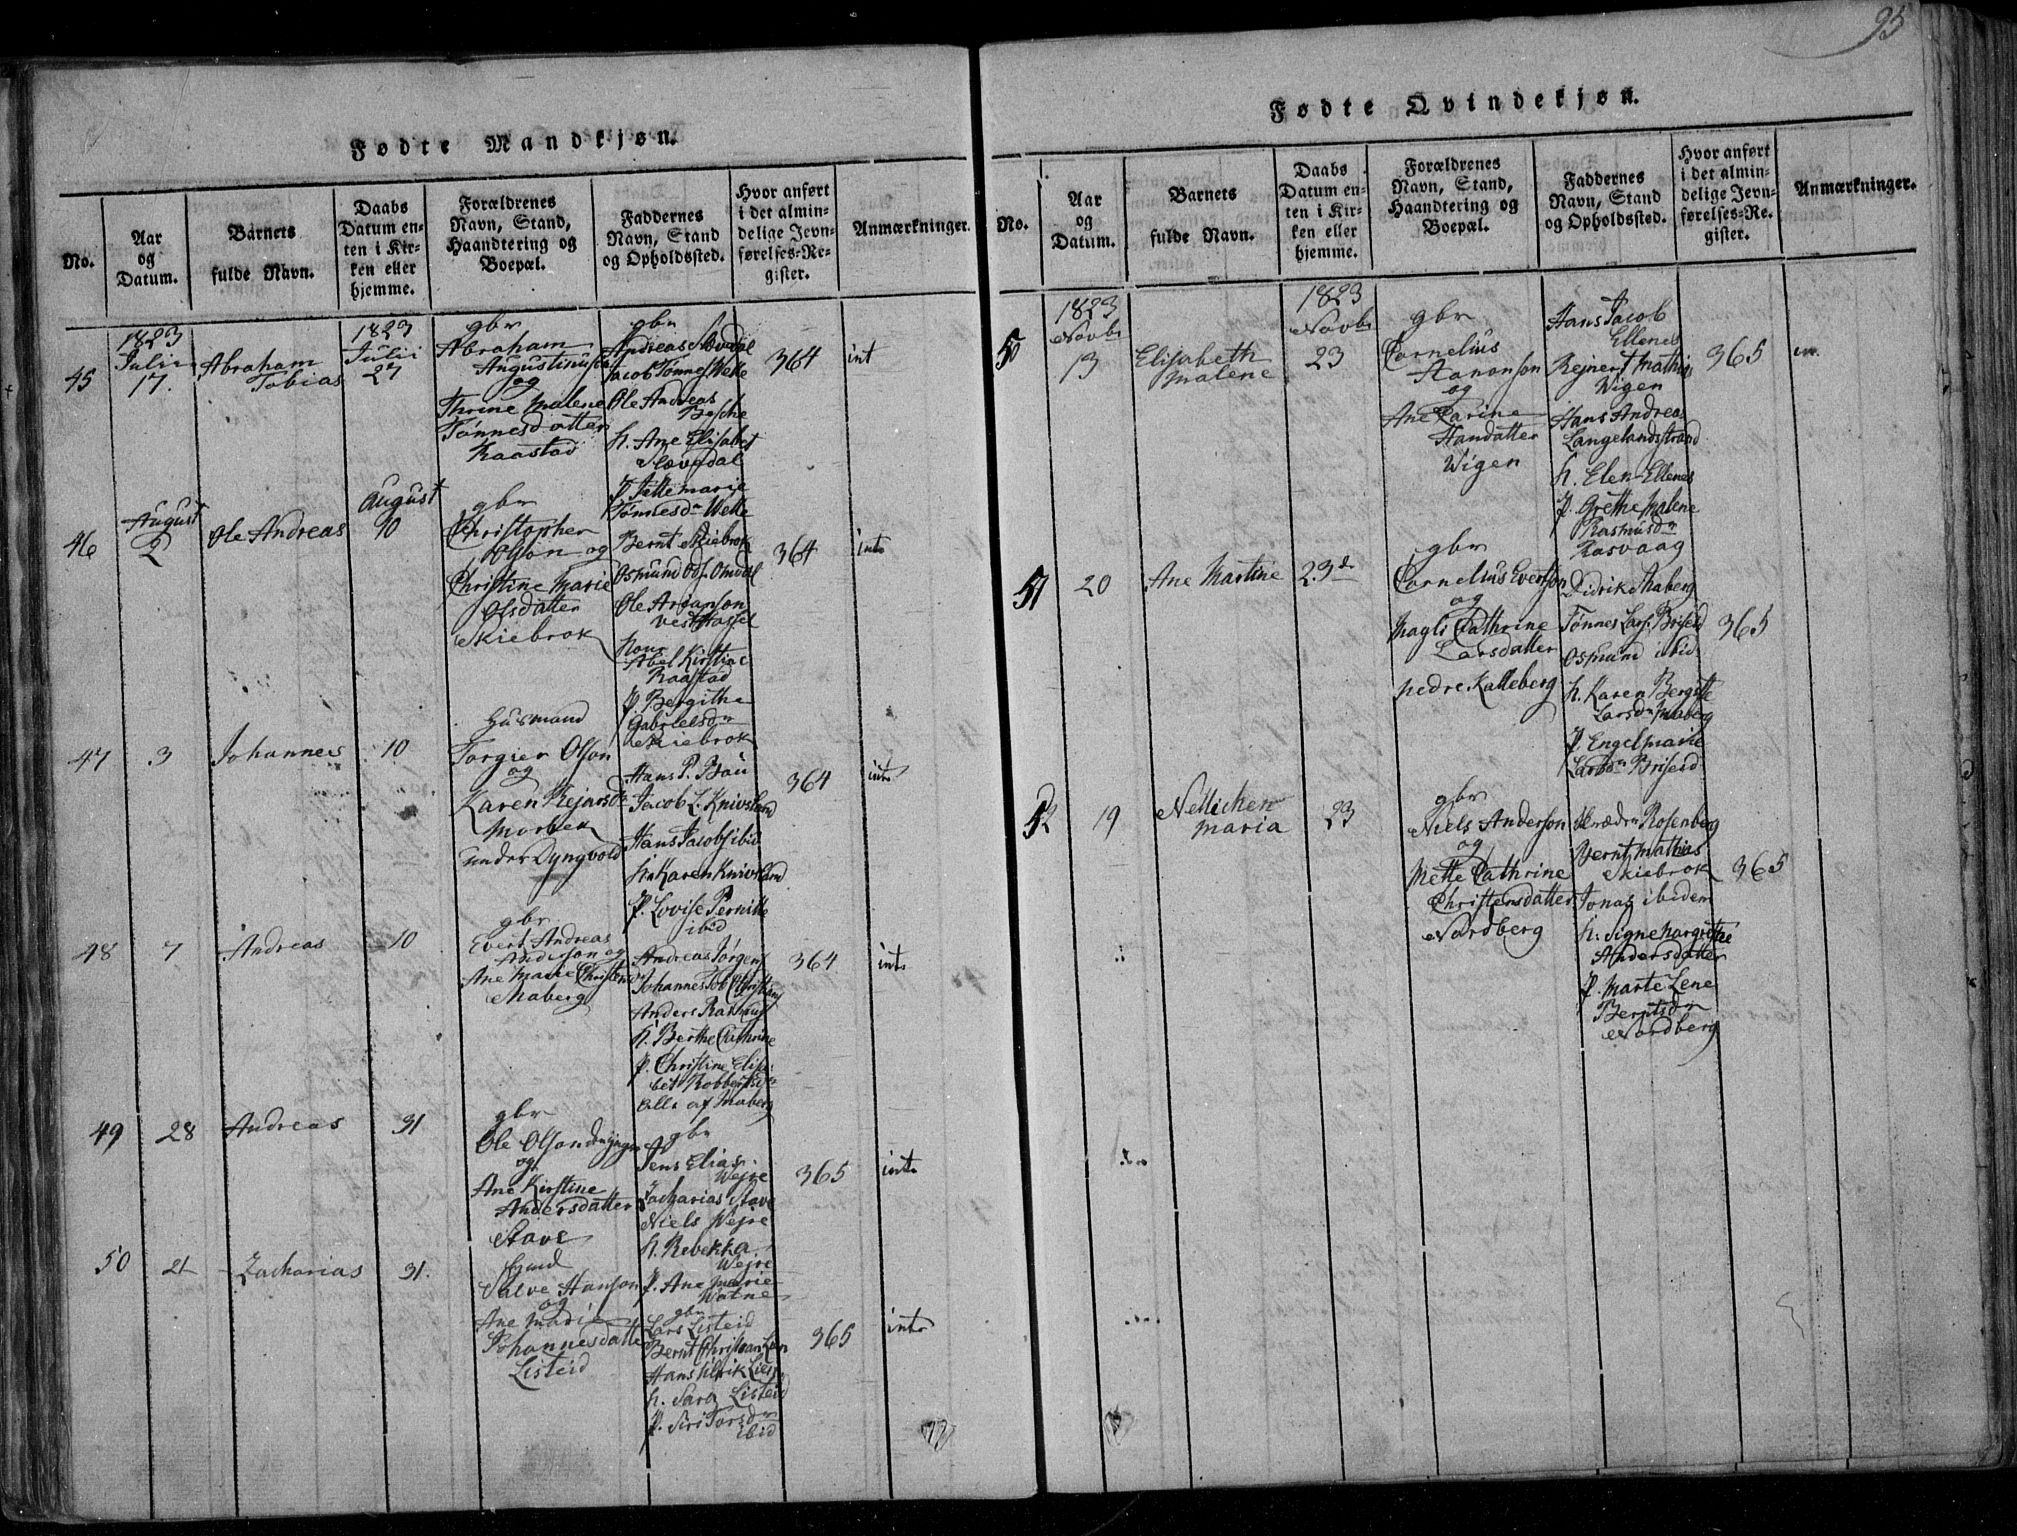 95
Fødte Mandkjøn.
No.
Aar
og
Datum.
Barnets
fulde Navn.
Daabs
Datum en-
ten i Kir-
ken eller
hjemme.
Forældrenes
Navn, Stand,
Haandtering og
Boepæl.
Faddernes
Navn, Stand
og Opholdssted.
Hvor anført
i det almin-
delige Jevn-
førelses-Re-
gister.
Anmærkninger.
45
1823
Julii
17.
Abraham
Tobias
1823
Julii
27
gbr
Abraham
Augustinusen
og
Thrine Malene
Tønnesdatter
Raastad
gbr
Andreas
Jacob Tønnes Wette
Ole Andreas
h. Ane Elisabet
p. Jattemarie
Tønnesdr Wette
364
int
46
August
2
Ole Andreas
August
10
gbr
Christopher
Olson og
Christine Marie
Olsdatter
Skiebrok
Bernt Skiebrok
Osmund Ods. Omdal
Ole Arianson
vesthassel
Abel Kirstine
Raastad
p. Bergithe
Gabrielsdr
Skiebrok
364
int
47
3
Johannes
10
Husmand
Torgier Olson
og
Karen Rejarsdr
Morbek
under Dyngvold
Hans P. Bøu
Jacob L. Knivsland
Hans Jacobs ibid
h Karen Knivsland
p. Lovise Pernille
ibid
364
int
48
7
Andreas
10
gbr
Evert Andreas
Anderson og
Ane Marie Christens
Maberg
Andreas Jørgens
Johannes Tob Christens
Anders Rasmus
h. Berthe Cathrine
p. Christine Elisa
bet Robbertsdr
alle af Maberg
364
int
49
28
Andreas
31
gbr
Ole Olson
og
Ane Kirstine
Andersdatter
Stave
gbr
Jens Elias
Wejre
Zacharias Stave
Niels Wejre
h. Rebekka
Wejre
p. Ane Marie
Watne
365
int
50
21
Zacharias
31.
Salve Hanson
og
Ane Marie
Johannesdatter
Listeid
gbr
Lars Listeid
Bernt Christian
Hans
h. Sara Listeid
p. Siri Torsdr
ibid
365
int
Fødte Qvindekjøn.
No.
Aar
og
Datum.
Barnets
fulde Navn.
Daabs
Datum en-
ten i Kir-
ken eller
hjemme.
Forældrenes
Navn, Stand,
Haandtering og
Boepæl.
Faddernes
Navn, Stand
og Opholdssted.
Hvor anført
i det almin-
delige Jevn-
førelses-Re-
gister.
Anmærkninger.
50
1823
Novbr
13
Elisabeth
Malene
1823
Novbr
23
gbr
Cornelius
Aananson
og
Ane Carine
Handatter
Wigen
Hans Jacob
Ellenes
Rejnert Mathis
Wigen
Hans Andreas
Langelandstrand
h. Elen Ellenes
p. Grethe Malene
Rasmusdr
Rasvaag
365
51
20
Ane Martine
23d
gbr
Cornelius Evertson
og
Magli Cathrine
Larsdatter
nedre Kalleberg
Didrik Maberg
Tønnes Lars. Briseid
Osmund ibid
h. Karen Bergitte
Larsdr Maberg
p. Engel marie
Larsdr Briseid
365
52
19
Nellichen
maria
23
gbr
Niels Anderson
og
Mette Cathrine
Christensdatter
Nordberg
Rosenberg
Bernt Mathias
Skiebrok
Jonas ibidem
h: Signe Margrethe
Andersdatter
p. Marte Lene
Berntsdr
Nordberg
365